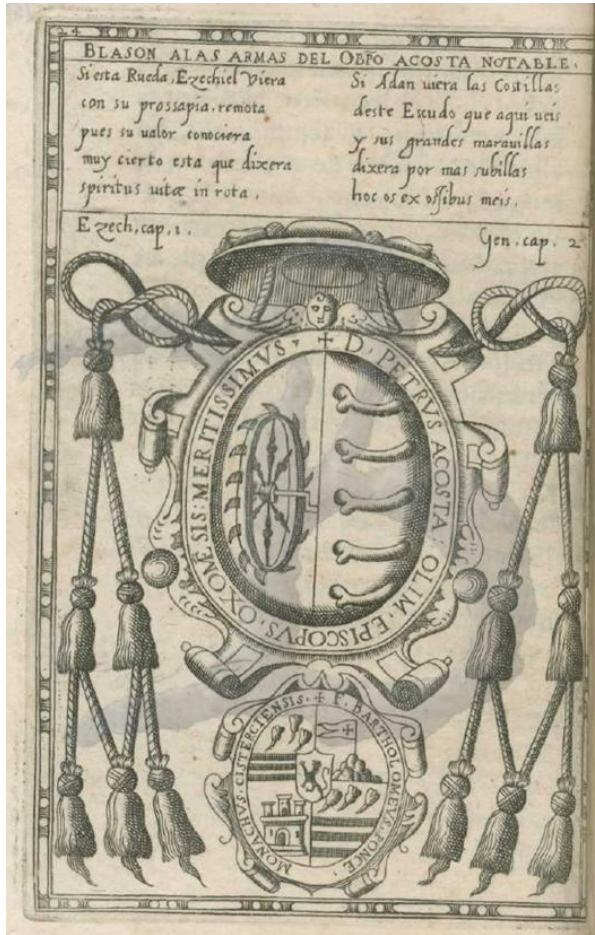 24
BLASON ALAS ARMAS DEL OBPO ACOSTA NOTABLE.
Si esta Rueda, Ezechiel Viera
con su prossapia, remota
pues su valor conociera
muy cierto esta que dixera
spiritus uitæ in rota,
Ezech, cap, 1.
Si Adan uiera las Costillas
deste Escudo que aqui ueis
y sus grandes marauillas
dixera por mas subillas
hoc os ex ossibus meis.
Gen. cap. 2
✝ D. PETRVS ACOSTA: OLIM. EPISCOPVS. OXOMĒSIS: MERITISSIMVS.
✝ F. BARTHOLOMEVS. PONCE. MONACHVS. CISTERCIENSIS.